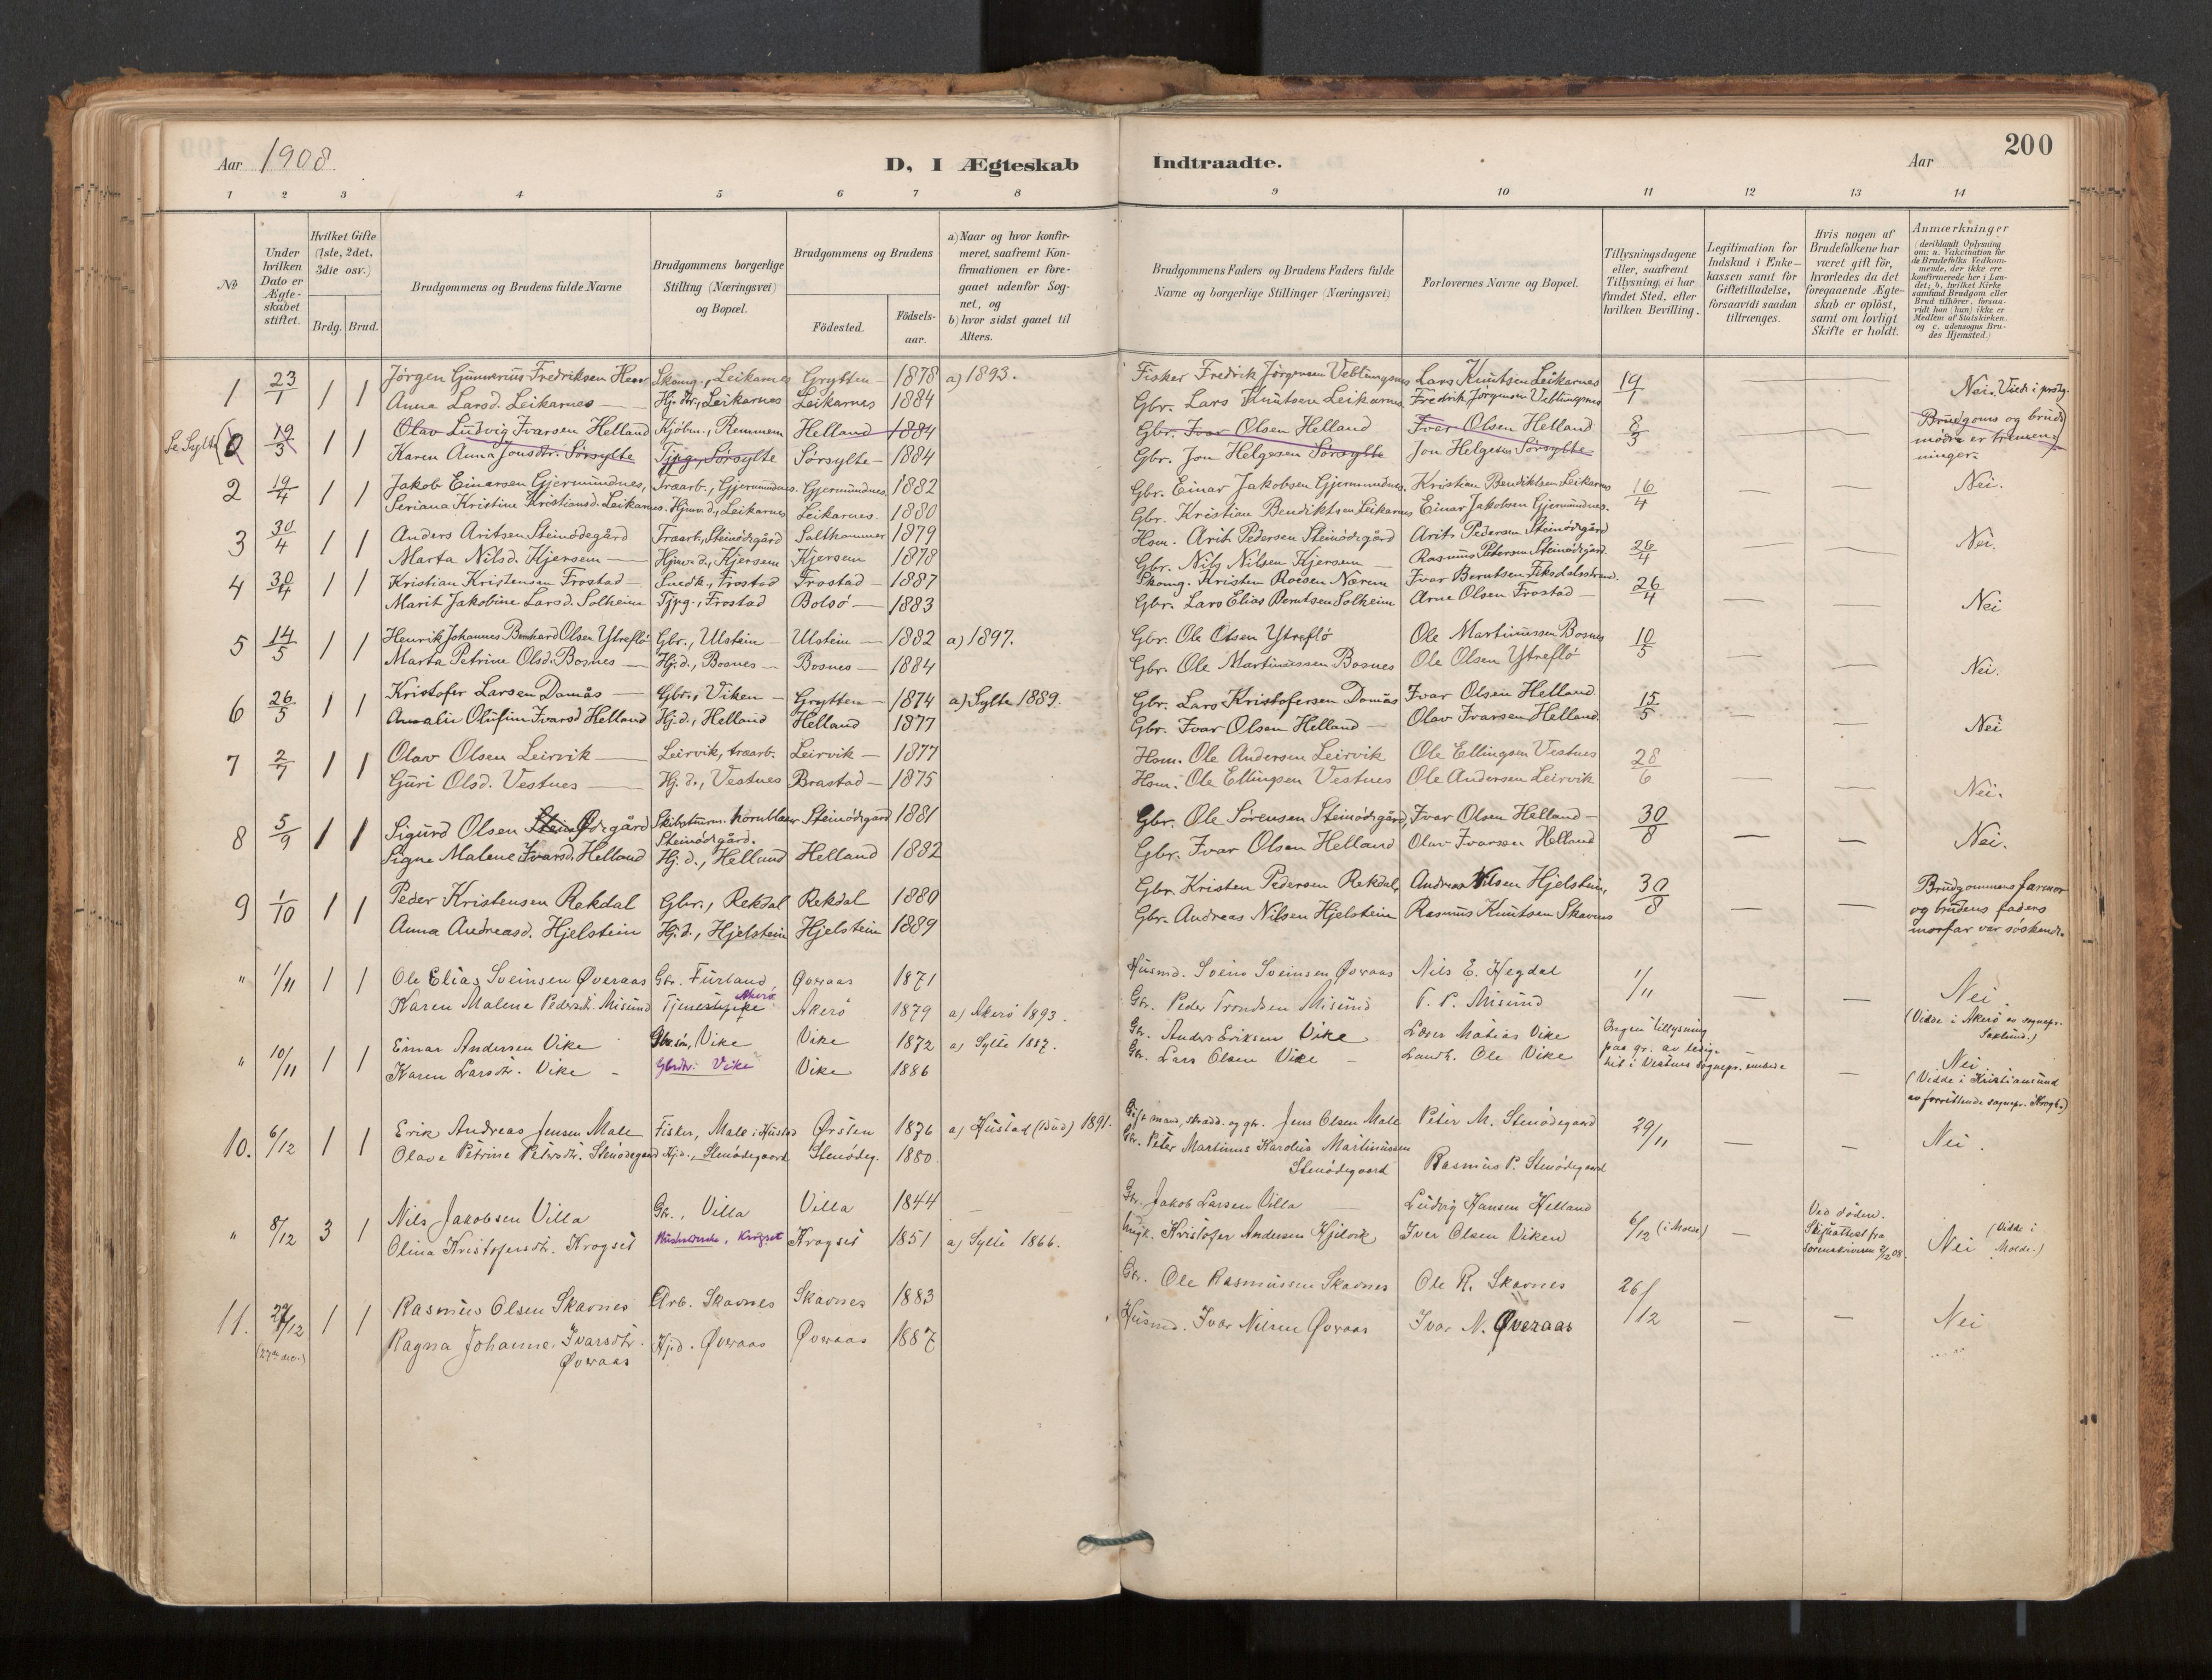 200
Aar 1908.
D, I Ægteskab Indtraadte.
Aar
1 2 3 4 5 6 7 8 9 10 11 12 13 14
№
Under hvilken Dato er Ægteskabet stiftet.
Hvilket Gifte (1ste, 2det, 3die osv.)
Brdg. Brud.
Brudgommens og Brudens fulde Navne
Brudgommens borgerlige Stilling (Næringsvei) og Bopæl.
Brudgommens og Brudens
Födested.
Födselsaar.
a) Naar og hvor konfirmeret, saafremt Konfirmationen er foregaaet udenfor Sognet, og
b) hvor sidst gaaet til Alters.
Brudgommens Faders og Brudens Faders fulde Navne og borgerlige Stillinger (Næringsvei)
Forlovernes Navne og Bopæl.
Tillysningsdagene eller, saafremt Tillysning ei har fundet Sted, efter hvilken Bevilling.
Legitimation for Indskud i Enkekassen samt for Giftetilladelse, forsaavidt saadan tiltrænges.
Hvis nogen af Brudefolkene har været gift för, hvorledes da det foregaaende Ægteskab er oplöst, samt om lovligt Skifte er holdt.
Anmærkninger
(deriblandt Oplysning om: a. Vakcination for de Brudefolks Vedkommende, der ikke ere konfirmerede her i Landet; b. hvilket Kirkesamfund Brudgom eller Brud tilhörer, forsaavidt han (hun) ikke er Medlem af Statskirken, og c. udensogns Brudes Hjemsted.)
1 23/1 1 1 Jörgen Gunnerius Fredriksen Skomg., Leikarnes Grytten 1878 a) 1893. Fisker Fredrik Jörgensen Veblungsnes Lars Knutsen Leikarnes 19/1 — — Nei. Viede i prstg.
Anna Larsd. Leikarnes Hj. dtr., Leikarnes Leikarnes 1884 Gbr. Lars Knutsen Leikarnes Fredrik Jörgensen Veblungsnes
Se Sylte 0 19/3 1 1 Olav Ludvig Ivarsen Helland Kjöbm., Remmem Helland 1884 Gbr. Ivar Olsen Helland Ivar Olsen Helland 8/3 Brudgoms og bruds
Karen Anna Jonsdtr. Sörsylte Tjpg., Sörsylte Sörsylte 1884 Gbr. Jon Helgesen Sörsylte Jon Helgesen Sörsylte mödre er tremenninger.
2 19/4 1 1 Jakob Einarsen Gjermundnes, Træarb., Gjermundnes. Gjermundnes. 1882 Gbr. Einar Jakobsen Gjermundnes. Kristian Bendiktsen Leikarnes 16/4 — — Nei.
Seriana Kristine Kristiansd. Leikarnes. Hjmv. d., Leikarnes Leikarnes. 1880 Gbr. Kristian Bendiktsen Leikarnes Einar Jakobsen Gjermundnes.
3 30/4 1 1 Anders Aritsen Steinödegård Træarb., Steinödegård Salthammer 1879 Hsm. Arit Pedersen Steinödegård Arit Pedersen Steinödegård 26/4 — — Nei.
Marta Nilsd. Kjersem Hjmv. d., Kjersem Kjersem 1878 Gbr. Nils Nilsen Kjersem Rasmus Petersen Steinödegård.
4 30/4 1 1 Kristian Kristensen Frostad Snedk., Frostad Frostad 1887 Skomg. Kristen Roesen Nærem Ivar Berntsen Fiksdalsstrand. 26/4 — — Nei
Marit Jakobine Larsd. Solheim Tjpg., Frostad Bolsö 1883 Gbr. Lars Elias Berntsen Solheim Arne Olsen Frostad
5 14/5 1 1 Henrik Johannes Bernhard Olsen Ytreflö Gbr., Ulstein Ulstein 1882 a) 1897. Gbr. Ole Olsen Ytreflö Ole Martinussen Bosnes 10/5 — — Nei.
Marta Petrine Olsd. Bosnes Hj.d., Bosnes Bosnes 1884 Gbr. Ole Martinussen Bosnes Ole Olsen Ytreflö
6 26/5 1 1 Kristofer Larsen Damås Gbr., Viken Grytten 1874 a) Sylte 1889. Gbr. Lars Kristofersen Damås Ivar Olsen Helland 15/5 — — Nei
Amalie Olufine Ivarsd Helland Hj.d., Helland Helland 1877 Gbr. Ivar Olsen Helland Olav Ivarsen Helland.
7 2/7 1 1 Olav Olsen Leirvik Leirvik, træarb. Leirvik 1877 Hsm. Ole Andersen Leirvik Ole Ellingsen Vestnes 28/6 — — Nei.
Guri Olsd. Vestnes Hj. d., Vestnes Brastad 1875 Hsm. Ole Ellingsen Vestnes Ole Andersen Leirvik
8 5/9 1 1 Sigurd Olsen Ödegård Skibsturm. hornblaser Steinödegård. Steinödegård 1881 Gbr. Ole Sörensen Steinödegård, Ivar Olsen Helland 30/8 — — Nei.
Signe Malene Ivarsd. Helland Hj. d., Helland Helland 1882 Gbr. Ivar Olsen Helland Olav Ivarsen Helland
9 1/10 1 1 Peder Kristensen Rekdal Gbr., Rekdal Rekdal 1880 Gbr. Kristen Pedersen Rekdal, Andreas Nilsen Hjelstein, 30/8 — — Brudgommens farmor
Anna Andreasd. Hjelstein Hj.d., Hjelstein Hjelstein 1889 Gbr. Andreas Nilsen Hjelstein Rasmus Knutsen Skavnes og brudens faders morfar var söskende.
" 1/11 1 1 Ole Elias Sveinsen Øveraas Gbr. Furland Øveraas 1871 Husmd. Svein Sveinsen Øveraas Nils E. Hegdal 1/11 — — Nei.
Karen Malene Pedersdtr. Misund Tjenestepike Akerö Akerö 1879 a) Akerö 1893. Gbr. Peder Trondsen Misund T. P. Misund (Viede i Akerö av sognepr. Saxlund.)
" 10/11 1 1 Einar Andersen Vike Vike Vike 1872 a) Sylte 1887. Gbr. Anders Eriksen Vike Lærer Matias Vike Ingen tillysning paa gr. av ledighet i Vestnes sognepr. embede — Nei
Karen Larsdtr. Vike Gbrdtr. Vike Vike 1886 Gbr. Lars Olsen Vike Landh. Ole Vike (Viede i Kristiansund av forrettende sognepr. Krogh.)
10. 6/12 1 1 Erik Andreas Jensen Male Fisker, Male i Hustad Ørsten 1876 a) Hustad (Bud) 1891. Gift mand, stradd. og gbr. Jens Olsen Male Peter M. Stenödegaard 29/11 — — Nei
Olave Petrine Petersdtr. Stenödegaard Hj.d., Stenödegaard Stenödeg. 1880. Gbr. Peter Martinus Karolius Martinussen Stenödegaard Rasmus P. Stenödegaard
" 8/12 3 1 Nils Jakobsen Villa Gbr., Villa Villa 1844 — — Gbr. Jakob Larsen Villa Ludvig Hansen Helland 6/12 (i Molde) — Ved döden. Nei (Viede i Molde.)
Olina Kristofersdtr. Krogset Krogset Krogset 1851 a) Sylte 1866. Kristofer Andersen Kjelvik Iver Olsen Viken Skifteattest fra sorenskriveren 2/12 08.
11. 27/12 1 1 Rasmus Olsen Skavnes Arb. Skavnes Skavnes 1883 Gbr. Ole Rasmussen Skavnes Ole R. Skavnes 26/12 — — Nei
(27de dec.) Ragna Johanne Ivarsdtr. Øveraas Hj.d. Øveraas Øveraas 1887 Husmd. Ivar Nilsen Øveraas Ivar N. Øveraas